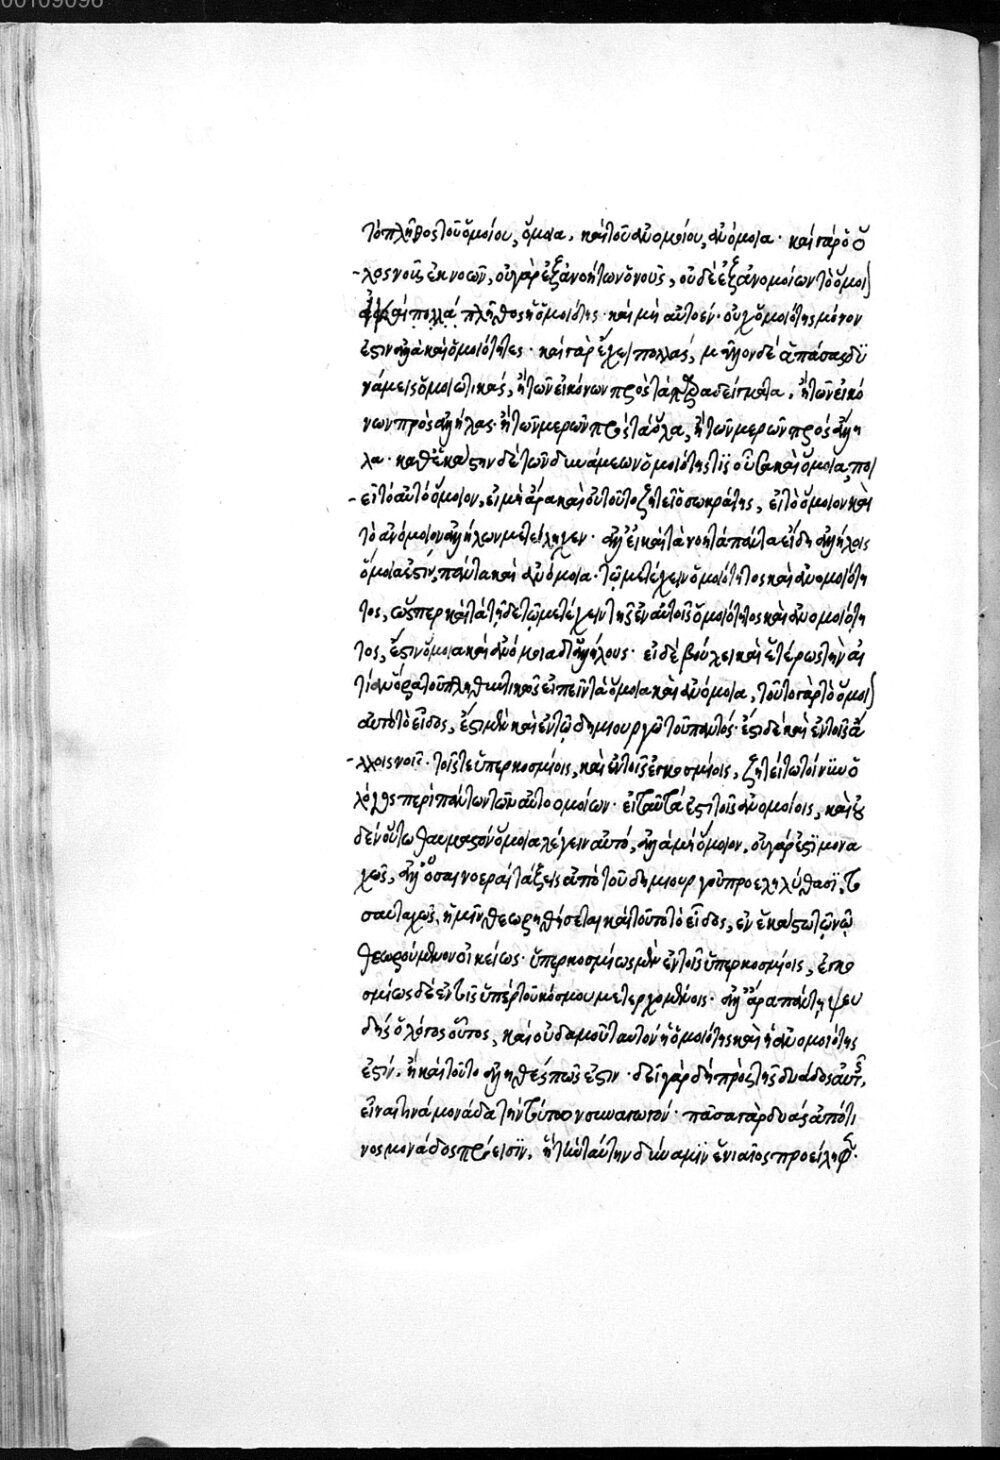 00109096
τὸ πλῆθος τοῦ ὁμοίου, ὅμοια. καὶ τοῦ ἀνομοίου, ἀνόμοια· καὶ γὰρ ὁ ὅ
λος νοῦς, ἐκ νοῶν, οὐ γὰρ ἐξ ἀνοήτων ὁ νοῦς, οὐδὲ ἐξ ἀνομοίων τὸ ὅμοι
πολλὰ πλῆθος ἡ ὁμοιότης· καὶ μὴ αὐτοέν· οὐχ ὁμοιότης μόνον
ἐστὶν ἀλλὰ καὶ ὁμοιότητες· καὶ γὰρ ἔχει πολλάς, μᾶλλον δὲ ἁπάσας δυ
νάμεις ὁμοιωτικάς, ἢ τῶν εἰκόνων πρὸς τὰ παραδείγματα, ἢ τῶν εἰκό
νων πρὸς ἀλλήλας· ἢ τῶν μερῶν πρὸς τὰ ὅλα, ἢ τῶν μερῶν πρὸς ἄλλη
λα· καθ' ἑκάστην δὲ τῶν δυνάμεων ὁμοιότης τις οὖσα καὶ ὅμοια ποι
εῖ τὸ αὐτὸ ὅμοιον, εἰ μὴ ἄρα καὶ αὐτὸ τοῦτο ζητεῖ ὁ σωκράτης, εἰ τὸ ὅμοιον καὶ
τὸ ἀνόμοιον ἀλλήλων μετείληχεν· ἀλλ' εἰ καὶ τὰ νοητὰ πάντα εἴδη ἀλλήλοις
ὅμοιά ἐστιν, πάντα καὶ ἀνόμοια· τῷ μετέχειν ὁμοιότητος καὶ ἀνομοιότη
τος, ὥσπερ καὶ τὰ τῇδε τῷ μετέχειν τῆς ἐν αὐτοῖς ὁμοιότητος καὶ ἀνομοιότη
τος, ἔστιν ὅμοια καὶ ἀνόμοια δι' ἀλλήλους· εἰ δὲ βούλει καὶ ἑτέρως τὴν αἰ
τίαν ὁρᾶν τοῦ πληθυντικῶς εἰπεῖν τὰ ὅμοια καὶ ἀνόμοια, τοῦτο γὰρ τὸ ὅμοι
αὐτὸ τὸ εἶδος, ἔστι μὲν καὶ ἐν τῷ δημιουργῷ τοῦ παντός· ἔστι δὲ καὶ ἐν τοῖς ἄ
λλοις νοῖς· τοῖς τε ὑπερκοσμίοις, καὶ ἐν τοῖς ἐγκοσμίοις, ζητείτω τοίνυν ὁ
λόγος περὶ πάντων τῶν αὐτοομοίων· εἰ ταῦτά ἐστι τοῖς ἀνομοίοις, καὶ οὐ
δὲν οὕτω θαυμαστὸν ὅμοια λέγειν αὐτό, ἀλλὰ μὴ ὅμοιον, οὐ γάρ ἐστι μονα
χῶς, ἀλλ' ὅσαι νοεραὶ τάξεις ἀπὸ τοῦ δημιουργοῦ προεληλύθασι, το
σαυταχῶς ἡμῖν θεωρηθήσεται καὶ τοῦτο τὸ εἶδος, ἐν ἑκάστῳ τῶν νῶν
θεωρούμενον οἰκείως· ὑπερκοσμίως μὲν ἐν τοῖς ὑπερκοσμίοις, ἐγκο
σμίως δὲ ἐν τοῖς ὑπὲρ τοῦ κόσμου μετερχομένοις· ἀλλ' ἆρα πάντῃ ψευ
δὴς ὁ λόγος οὗτος, καὶ οὐδαμοῦ ταυτὸν ἡ ὁμοιότης καὶ ἡ ἀνομοιότης
ἐστίν. ἢ καὶ τοῦτο ἀληθές πῶς ἐστιν· δεῖ γὰρ δὴ πρὸ τῆς δυάδος αὐτῆς
εἶναί τινα μονάδα τὴν τούτων συναγωγόν· πᾶσα γὰρ δυὰς ἀπό τι
νος μονάδος πρόεισιν, ἢ τὴν ταύτην δύναμιν ἑνιαίως προείληφεν·